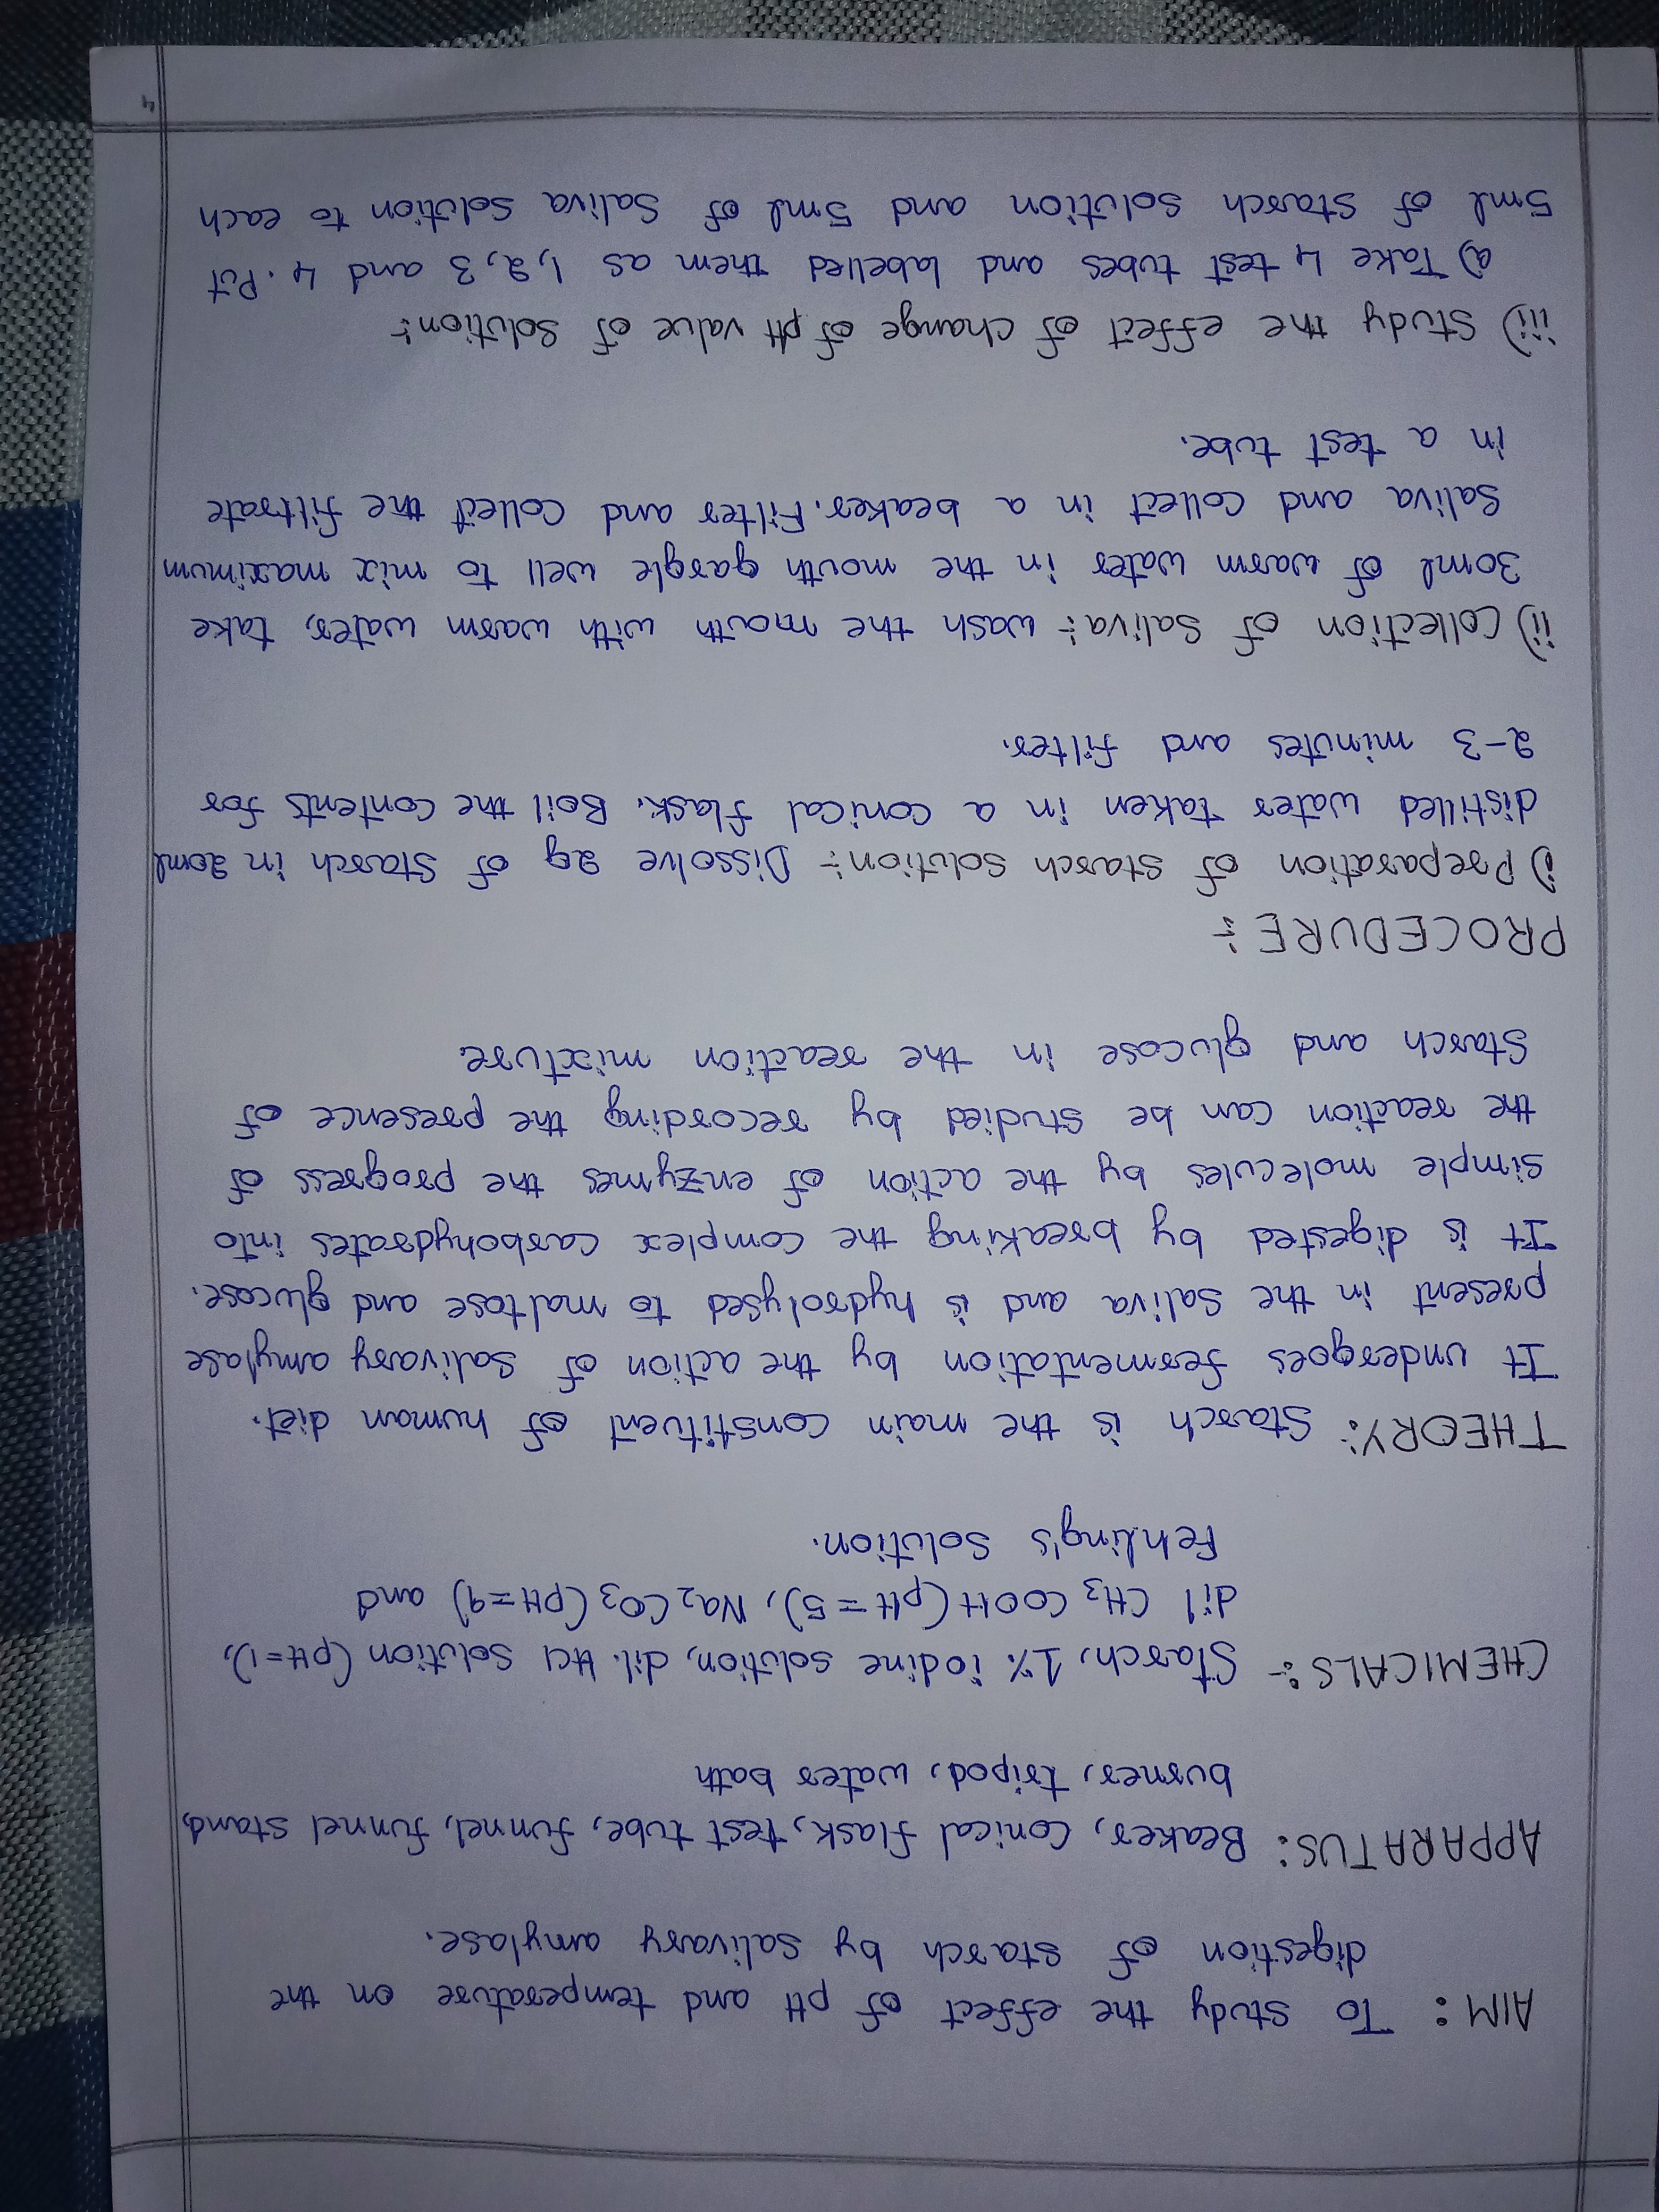 AIM: To study the effect of pH and temperature on the
digestion of starch by salivary amylase.
APPARATUS: Beaker, Conical flask, test tube, funnel, funnel stand,
burner, tripod, water bath
CHEMICALS:- Starch, 1% iodine solution, dil. HCl Solution (pH=1),
dil CH3 COOH (pH=5), Na2 CO3 (pH=9) and
Fehling's Solution.
THEORY:- Starch is the main constituent of human diet.
It undergoes fermentation by the action of Salivary amylase
present in the Saliva and is hydrolysed to maltose and glucose.
It is digested by breaking the complex carbohydrates into
simple molecules by the action of enzymes the progress of
the reaction can be studied by recording the presence of
Starch and glucose in the reaction mixture.
PROCEDURE:-
i) Preparation of starch solution:- Dissolve 2g of Starch in 20ml
distilled water taken in a conical flask. Boil the contents for
2-3 minutes and filter.
ii) Collection of Saliva:- wash the mouth with warm water, take
30ml of warm water in the mouth gargle well to mix maximum
Saliva and collect in a beaker. Filter and collect the filtrate
in a test tube.
iii) Study the effect of change of pH value of Solution:-
a) Take 4 test tubes and labelled them as 1, 2, 3 and 4. Put
5ml of starch solution and 5ml of Saliva Solution to each
4